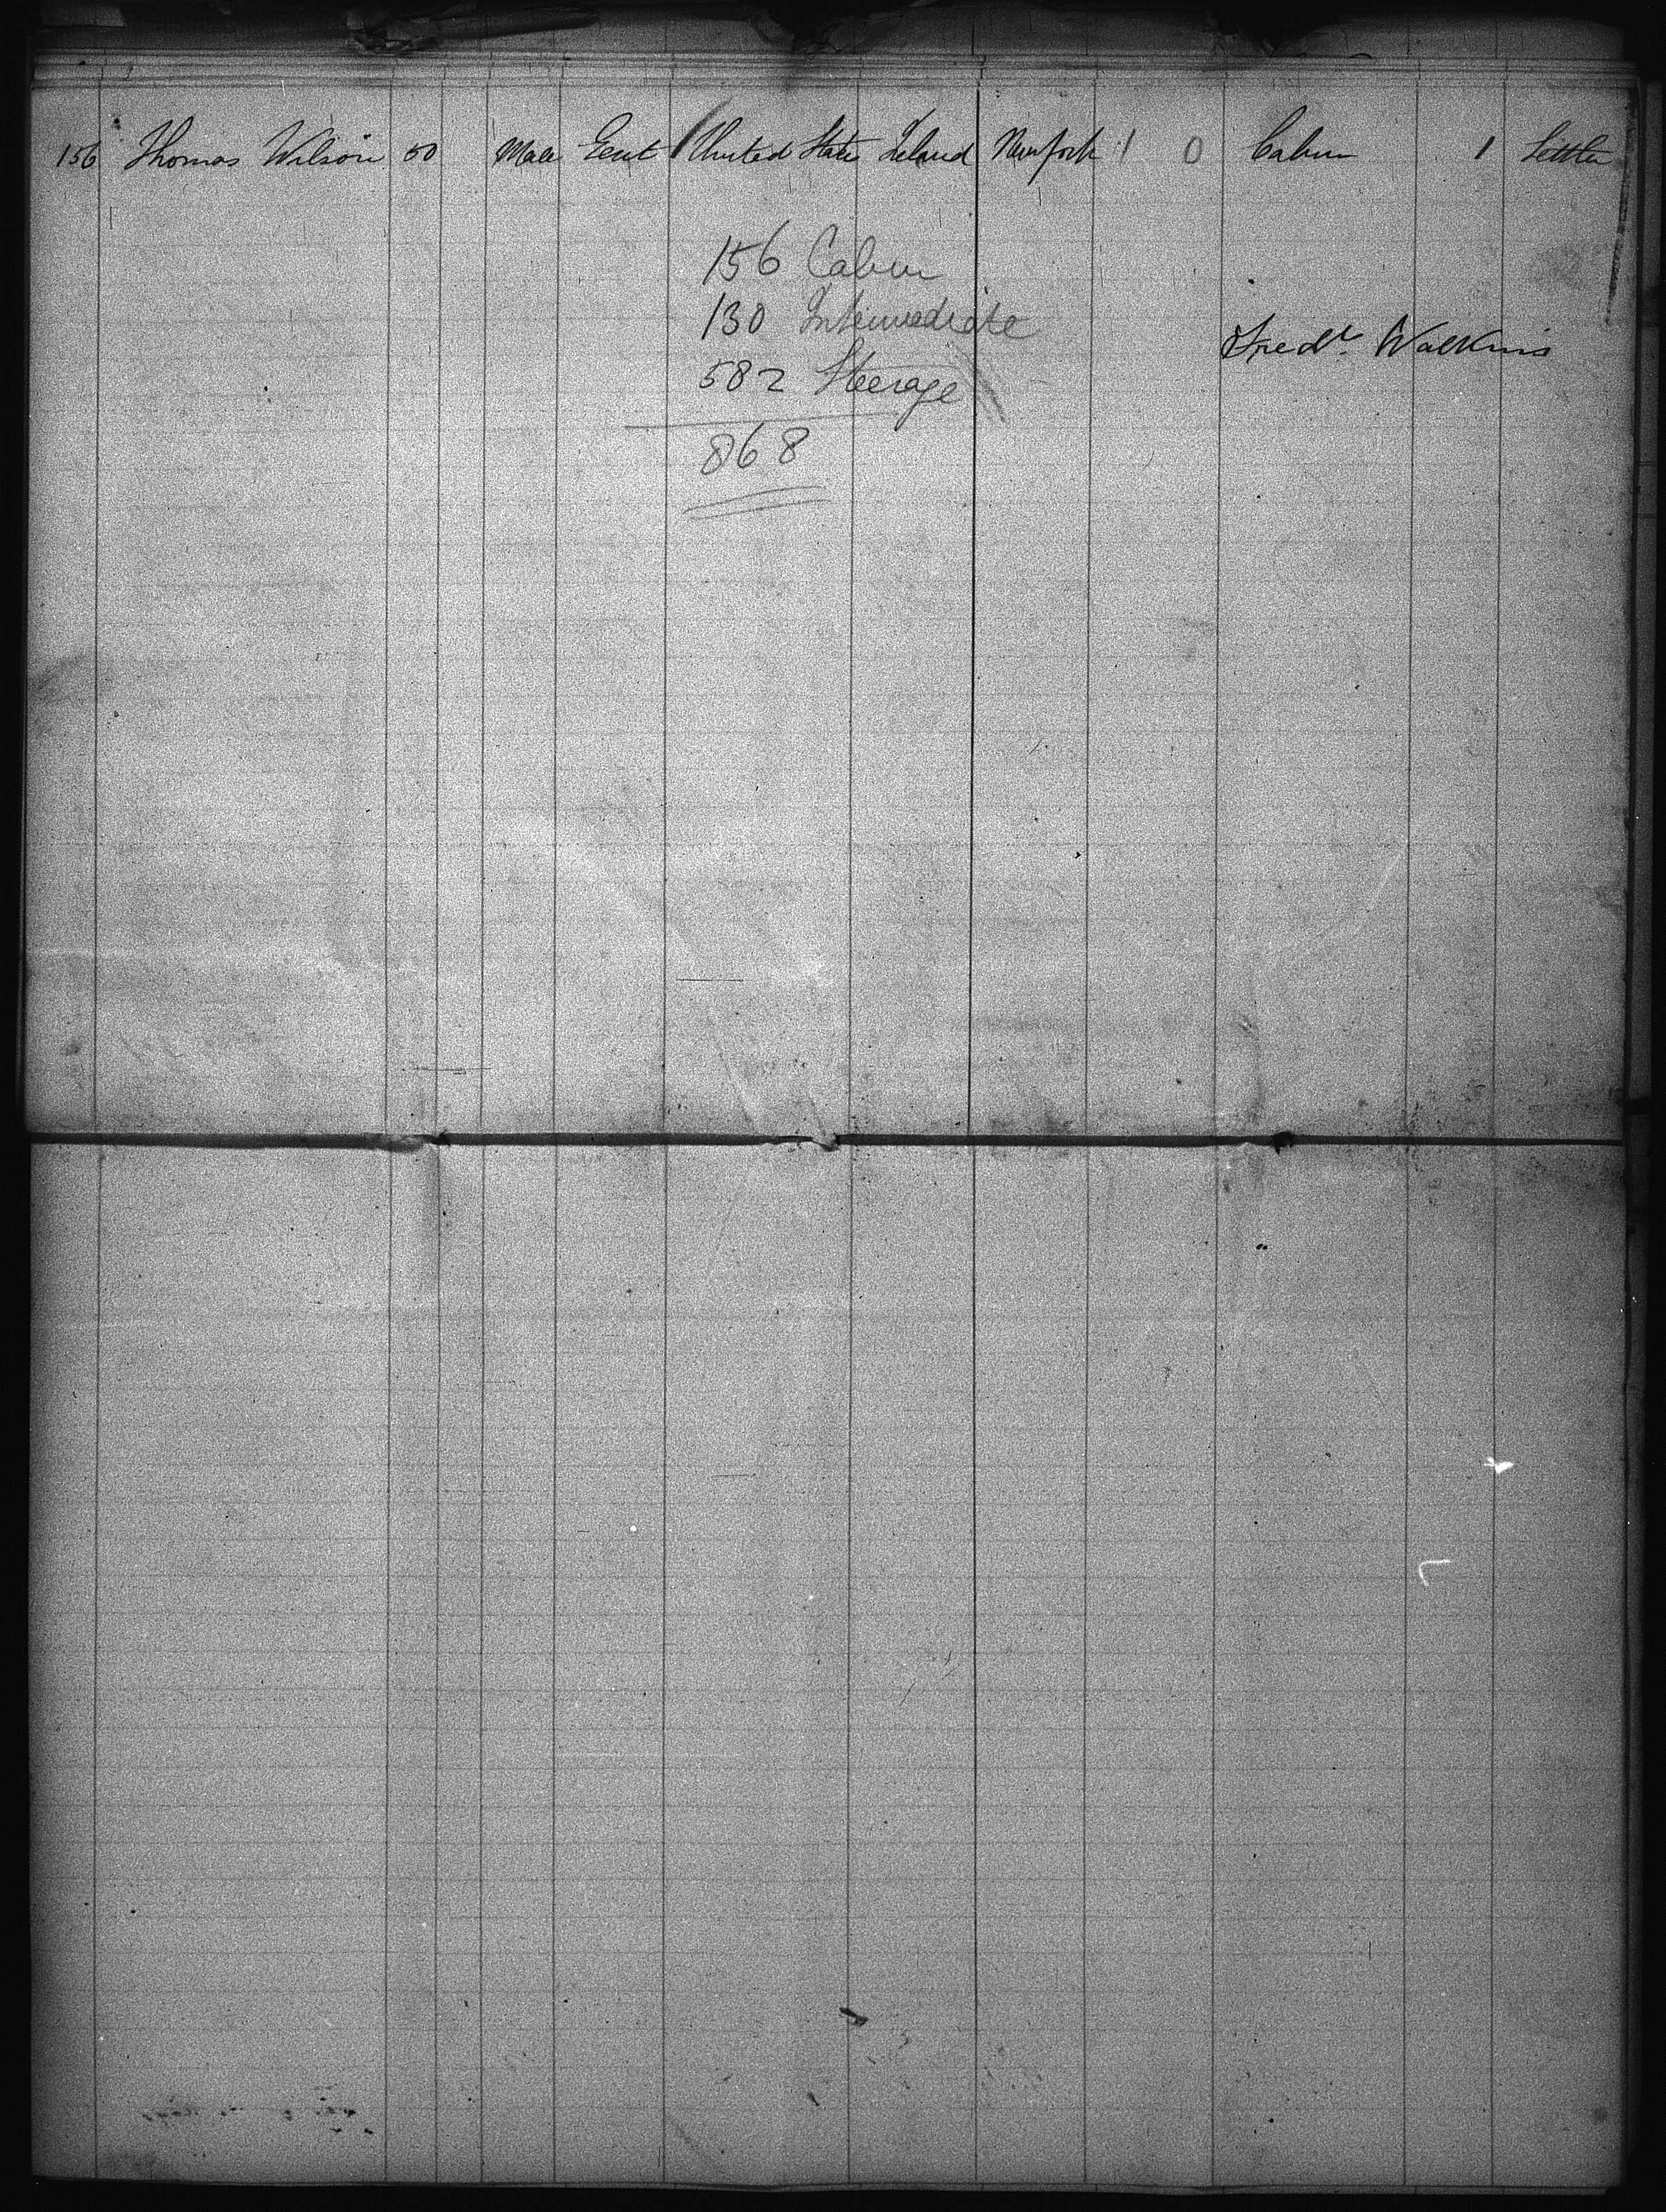 156 Thomas Wilson 50 Male Gent United States Ireland New York 1 0 Cabin 1 Settler
156 Cabin
130 Intermediate
582 Steerage
868
Fredk. Watkins